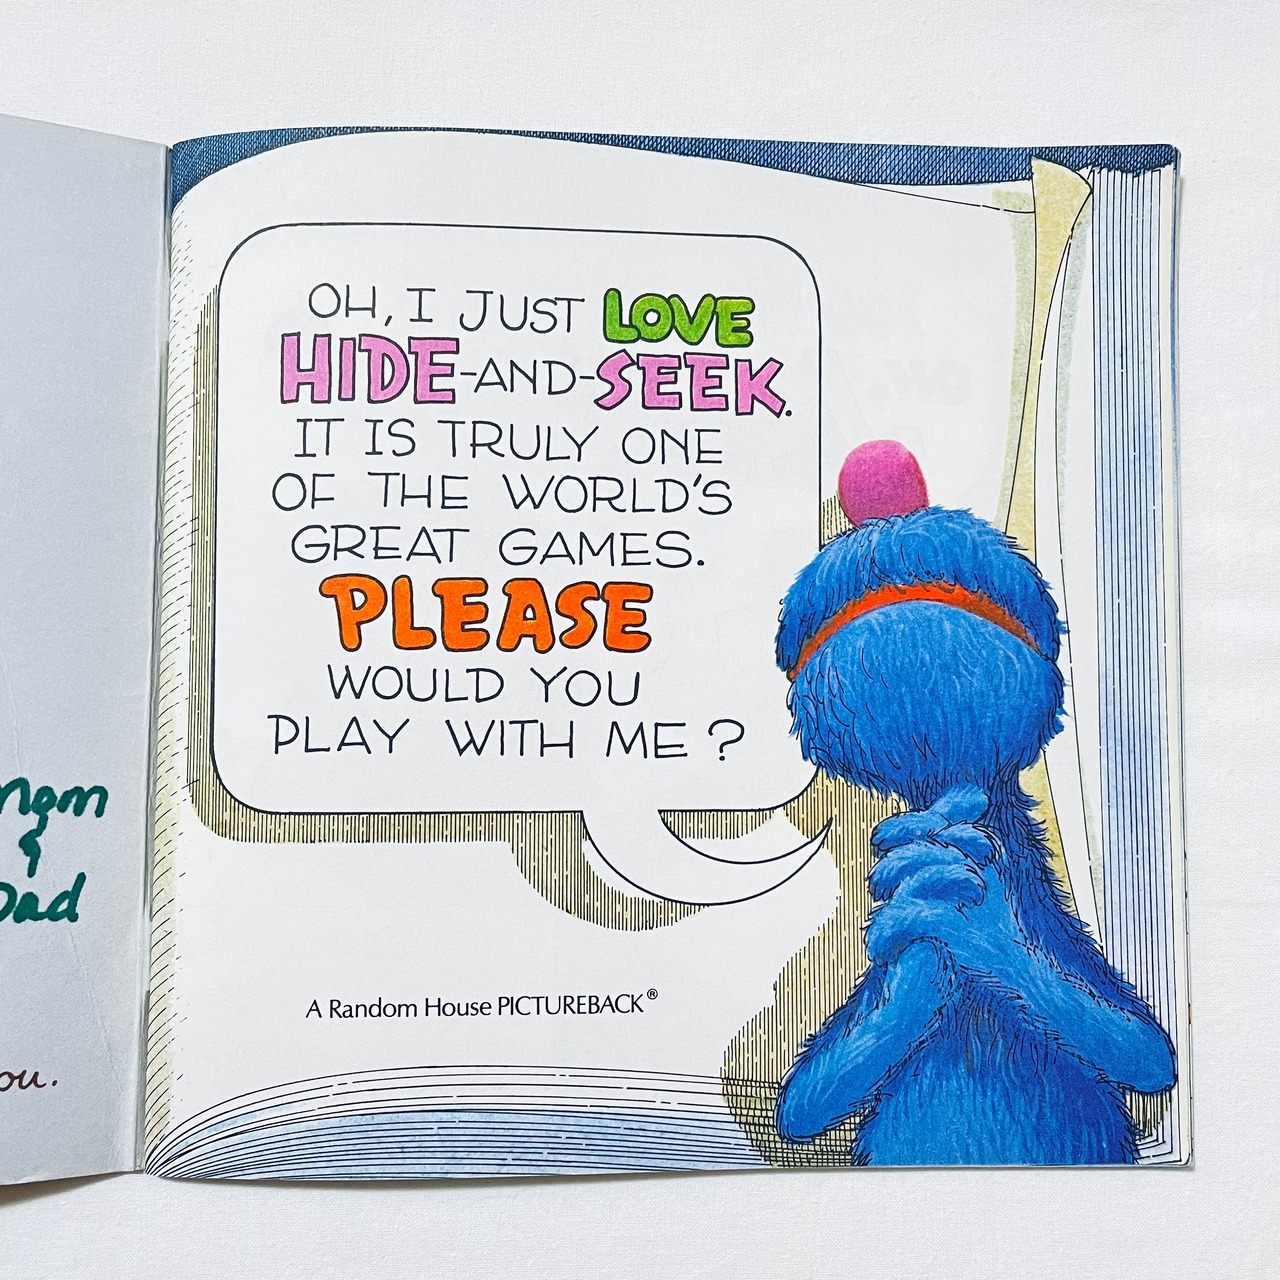 Mom
&
Dad
OH, I JUST LOVE
HIDE-AND-SEEK.
IT IS TRULY ONE
OF THE WORLD'S
GREAT GAMES.
PLEASE
WOULD YOU
PLAY WITH ME?
A Random House PICTUREBACK®